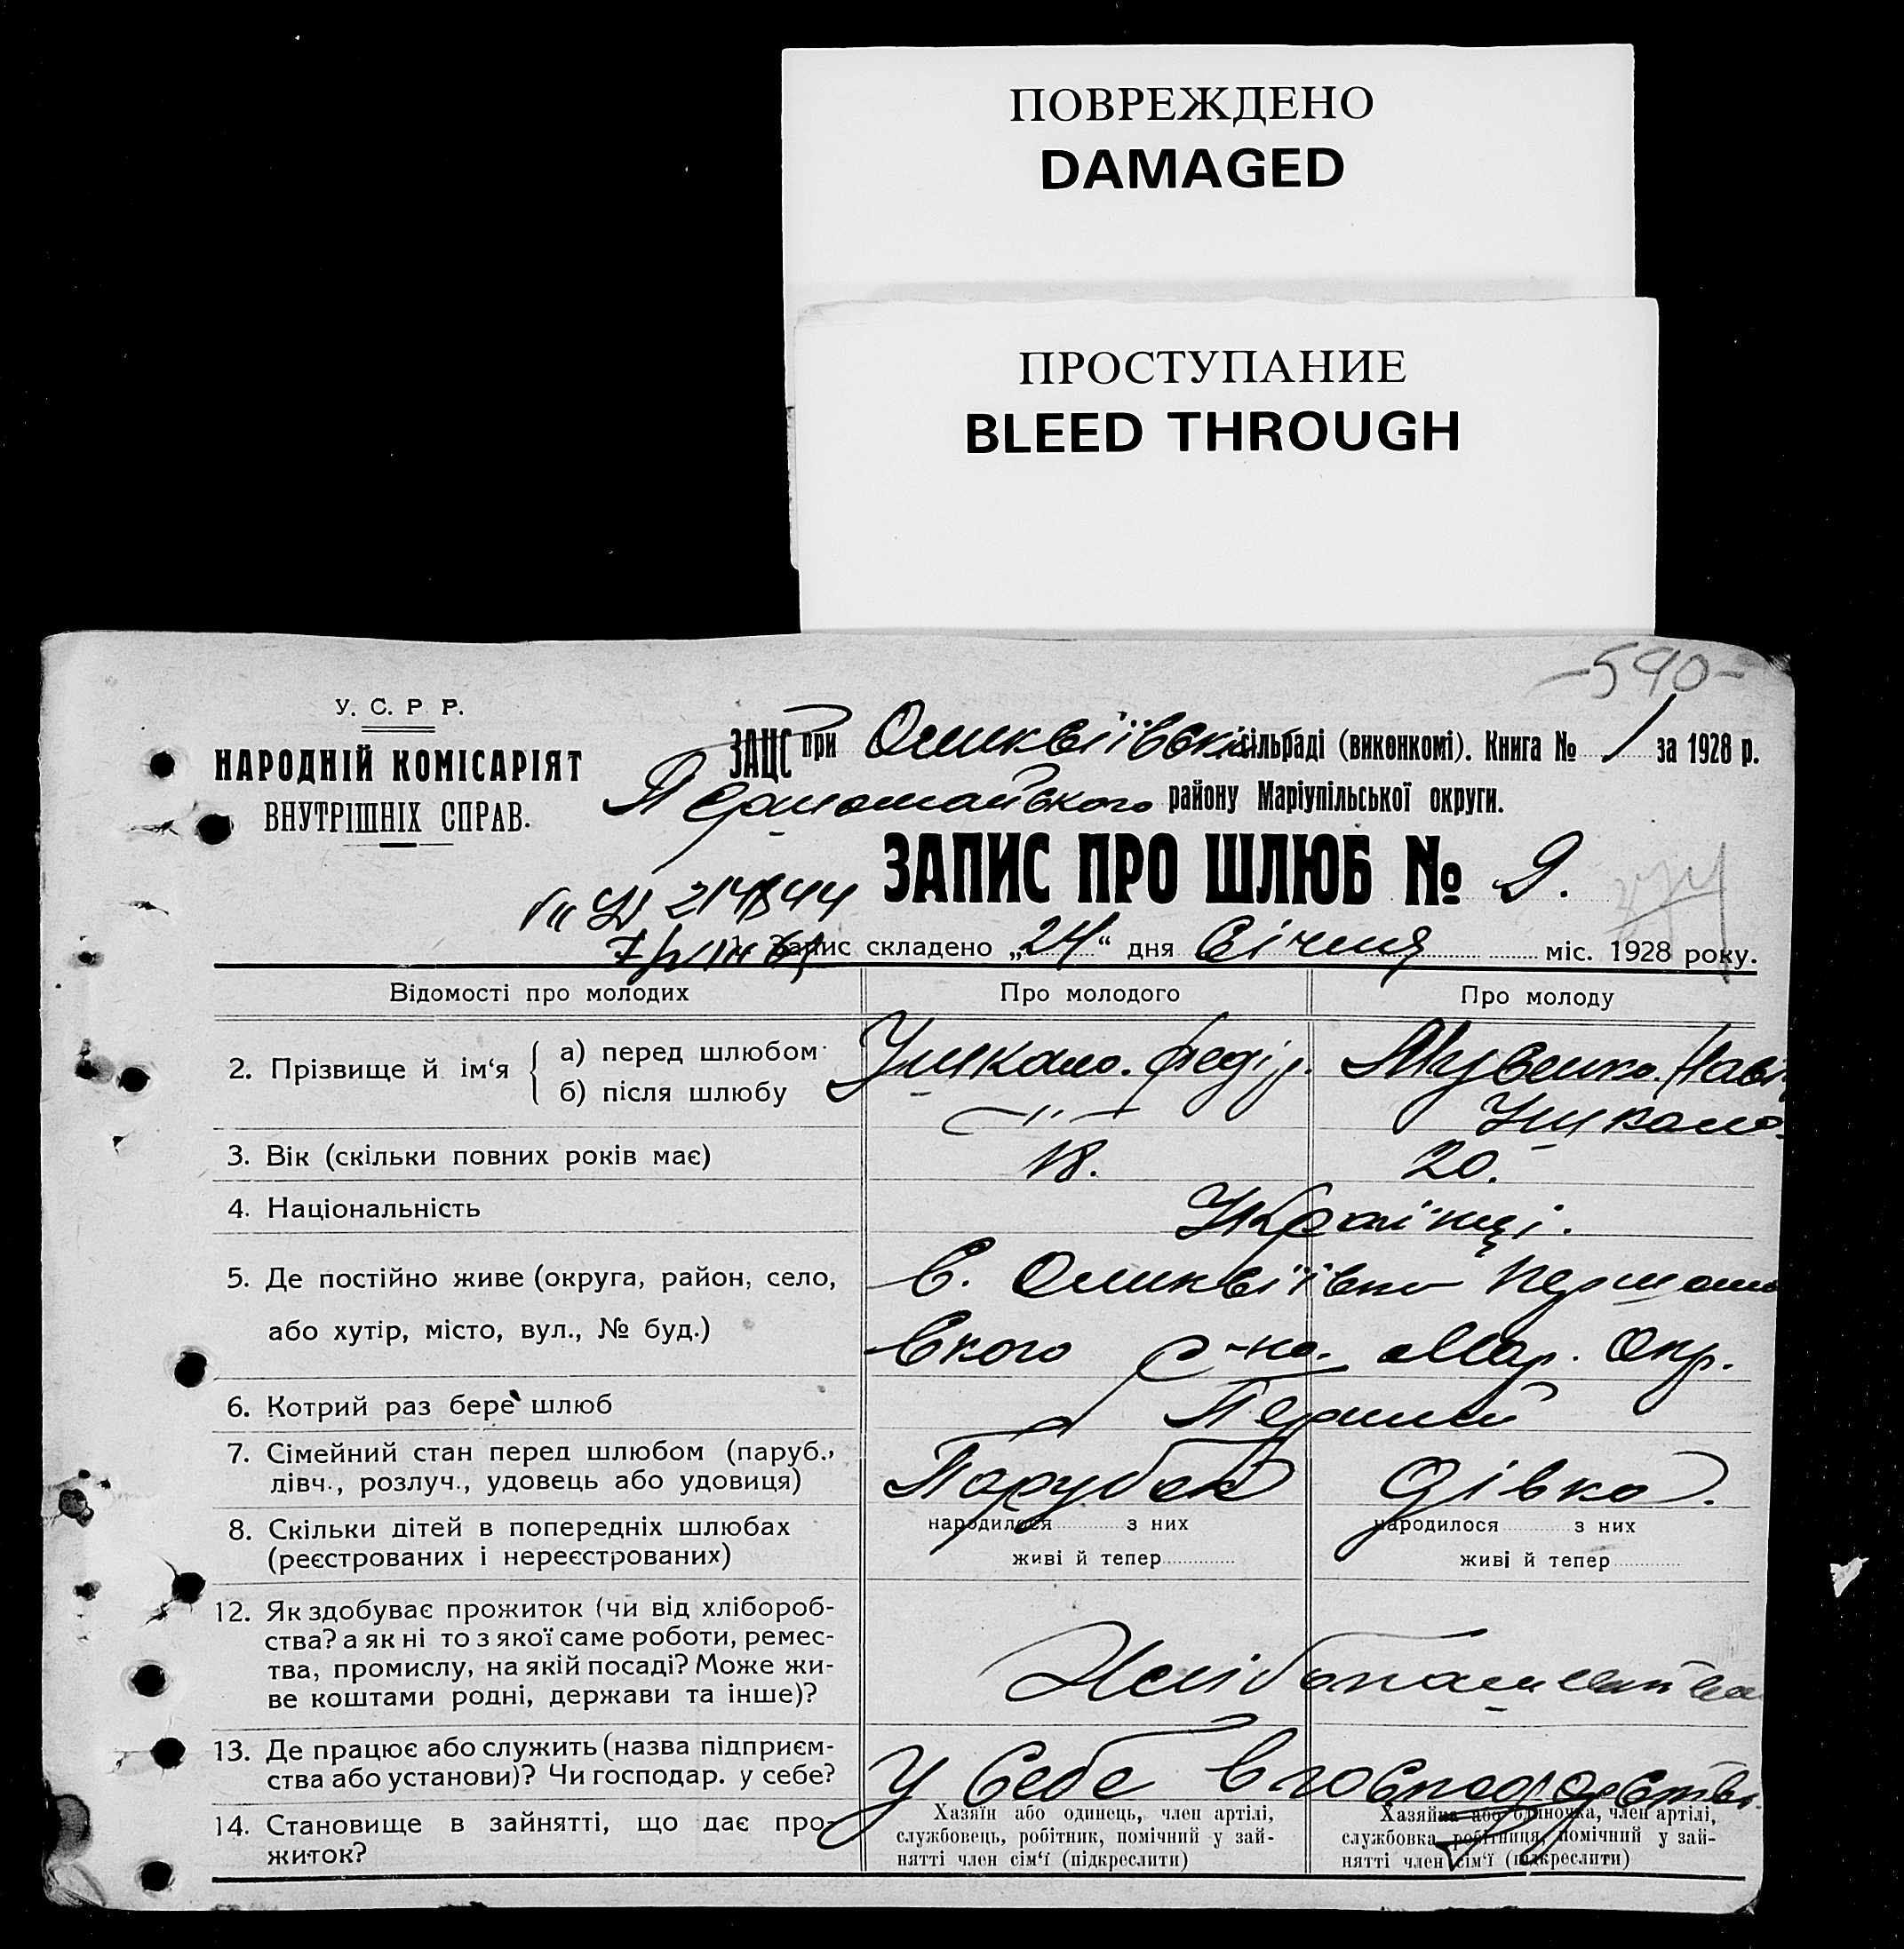 ПОВРЕЖДЕНО
DAMAGED
ПРОСТУПАНИЕ
BLEED THROUGH
-590-
У. С. Р. Р.
НАРОДНІЙ КОМІСАРІЯТ
ВНУТРІШНІХ СПРАВ.
ЗАЦС при сільраді (виконкомі). Книга № 1 за 1928 р.
Першомайського району Маріупільської округи.
ЗАПИС ПРО ШЛЮБ № 9.
1. Запис складено „24“ дня Січня міс. 1928 року.
Відомості про молодих Про молодого Про молоду
2. Прізвище й ім‘я а) перед шлюбом Федір.
б) після шлюбу — " —
3. Вік (скільки повних років має) 18. 20.
4. Національність Українці.
5. Де постійно живе (округа, район, село, с.
або хутір, місто, вул., № буд.) ського р-на. Мар. Окр.
6. Котрий раз бере шлюб Перший
7. Сімейний стан перед шлюбом (паруб., Парубок Дівка.
дівч., розлуч., удовець або удовиця)
8. Скільки дітей в попередніх шлюбах народилося з них народилося з них
(реєстрованих і нереєстрованих) живі й тепер живі й тепер
12. Як здобуває прожиток (чи від хлібороб-
ства? а як ні то з якої саме роботи, ремес-
тва, промислу, на якій посаді? Може жи-
ве коштами родні, держави та інше)?
13. Де працює або служить (назва підприєм-
ства або установи)? Чи господар. у себе? У себе в господарстві.
14. Становище в зайнятті, що дає про-
житок?
Хазяїн або одинець, член артілі,
службовець, робітник, помічний у зай-
нятті член сім‘ї (підкреслити)
Хазяйка або одиночка, член артілі,
службовка, робітниця, помічний у зай-
нятті член сім‘ї (підкреслити)